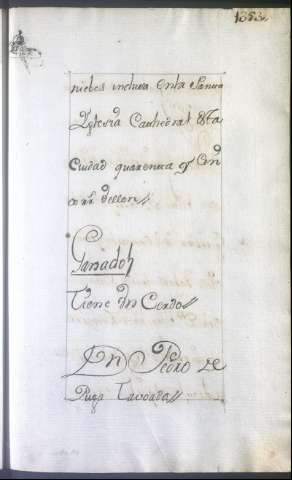 1353
niebes incluva en la Santa
Yglesia Cathedral de sta
Ciudad quarenta y Cin
co rr.s de Vellon //
Ganado //
Tiene Un Cerdo //
Dn Pedro de
Puga Tavoada //